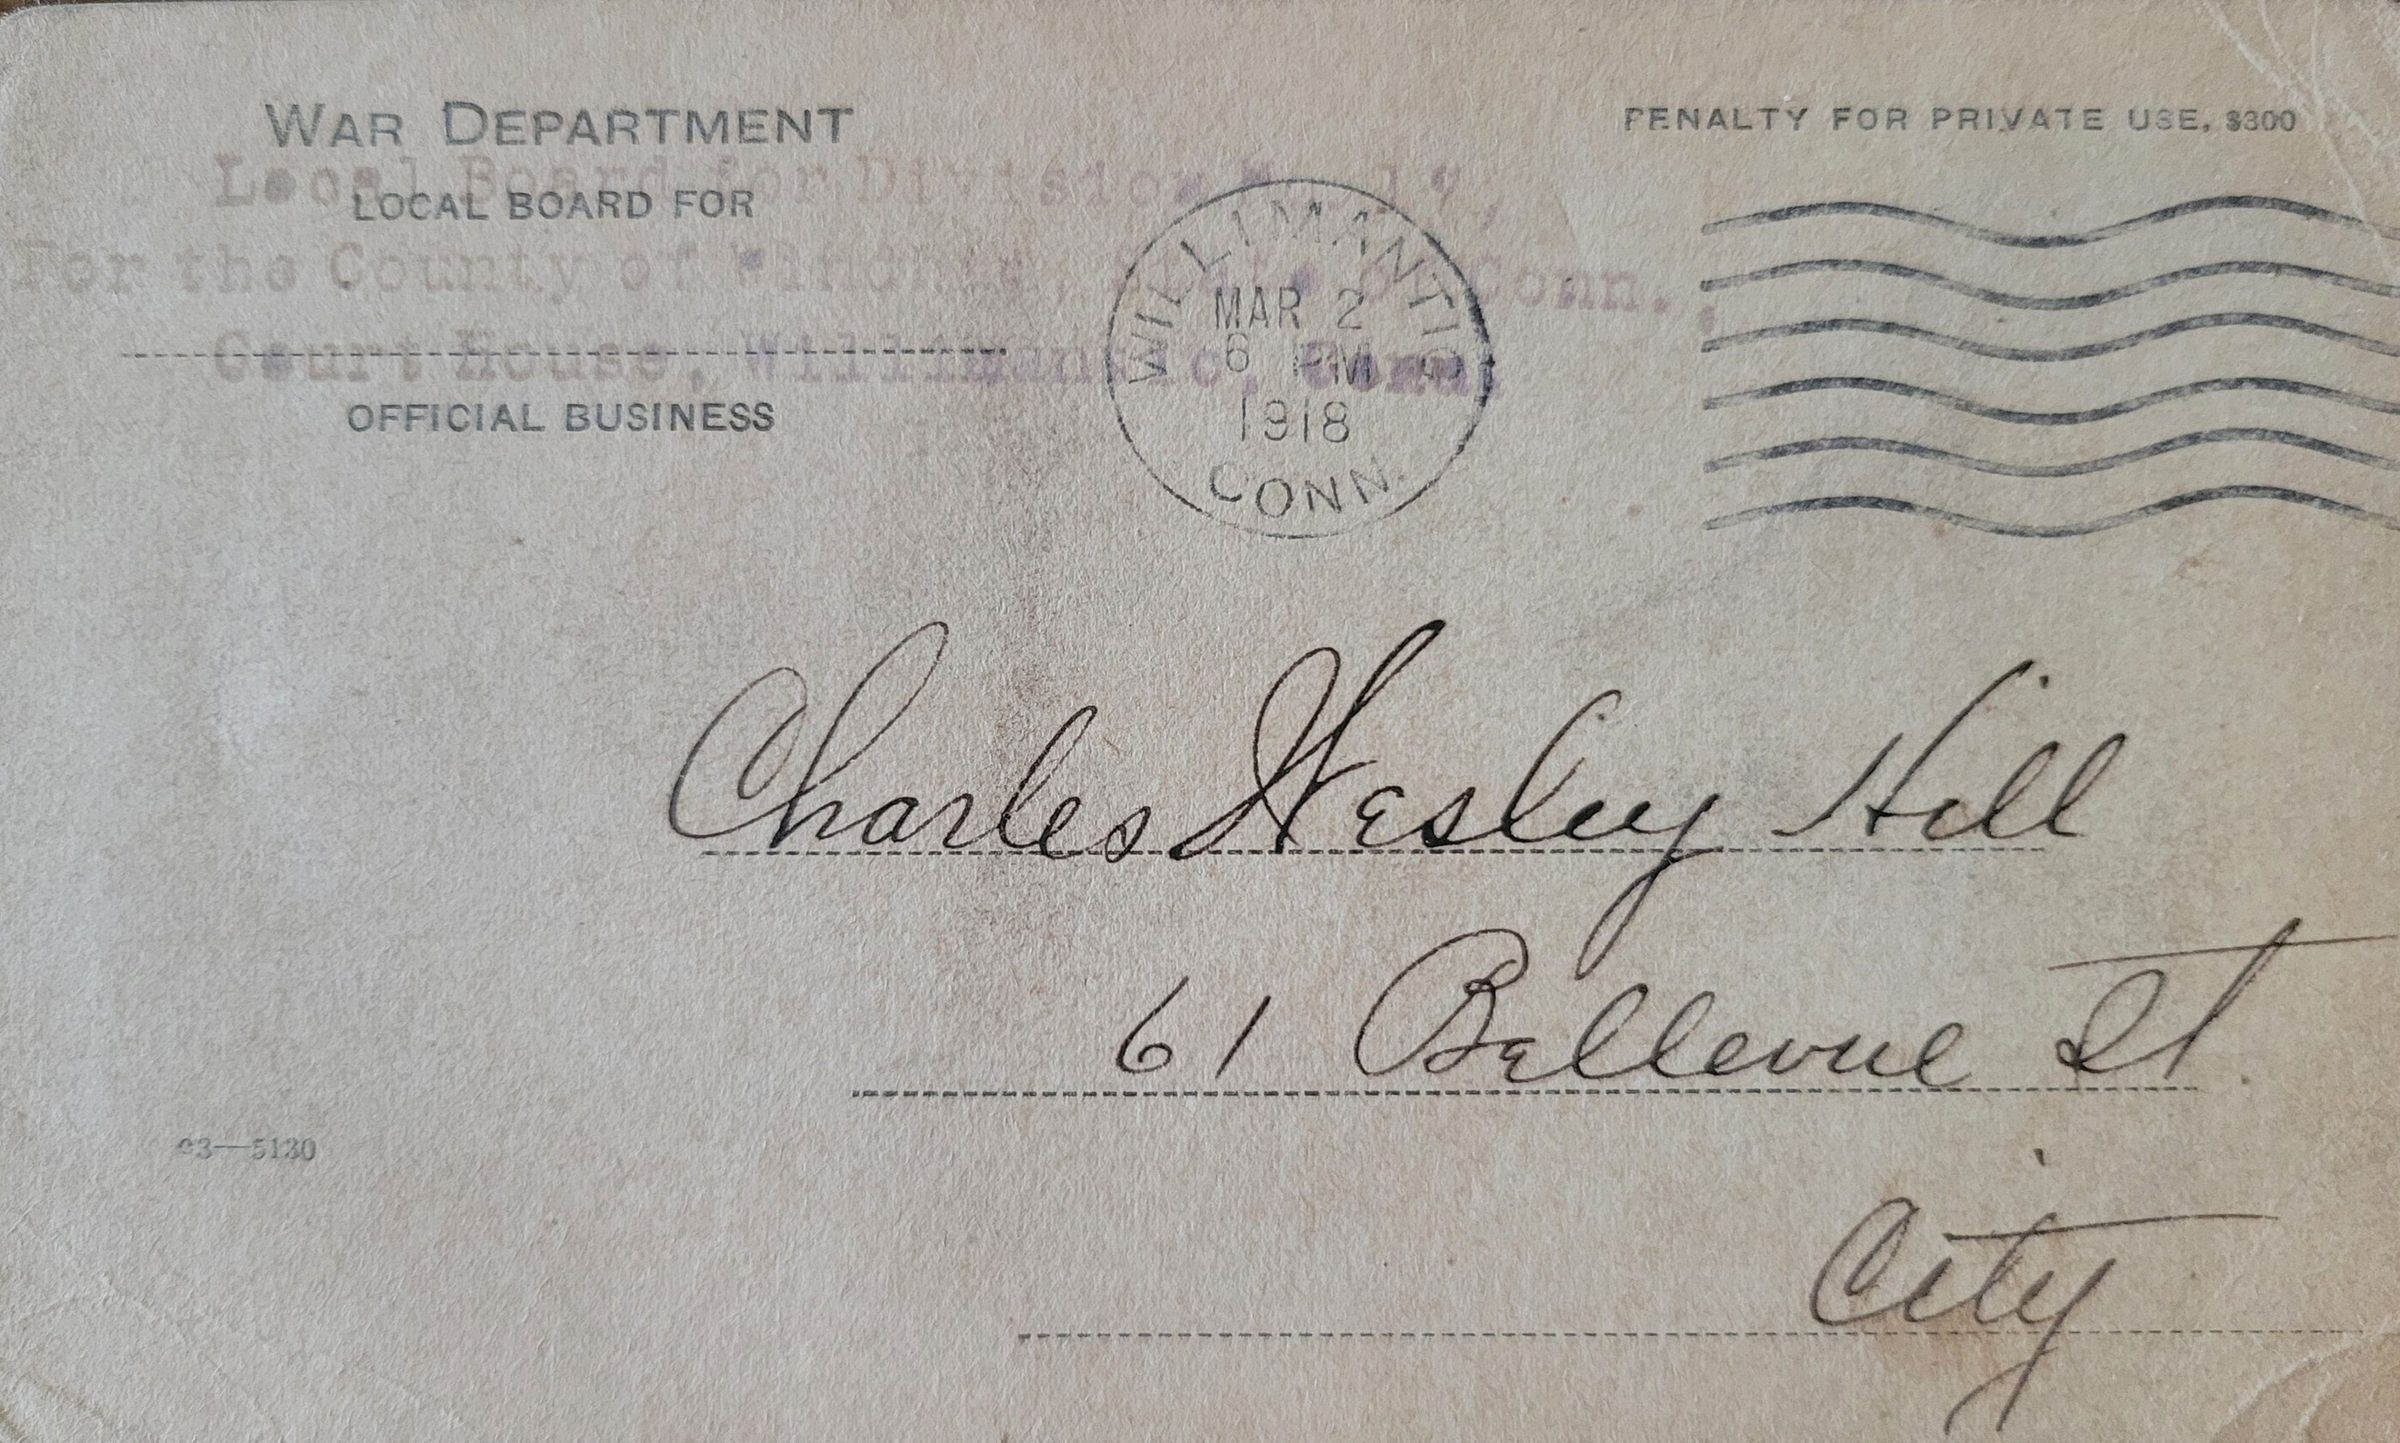 WAR DEPARTMENT
PENALTY FOR PRIVATE USE, $300
Local Board for Division No. 1,
LOCAL BOARD FOR
For the County of Windham, State of Conn.,
Court House, Willimantic, Conn.
OFFICIAL BUSINESS
WILLIMANTIC
MAR 2
6 PM
1918
CONN.
Charles Wesley Hill
61 Bellevue St.
City
03—5130